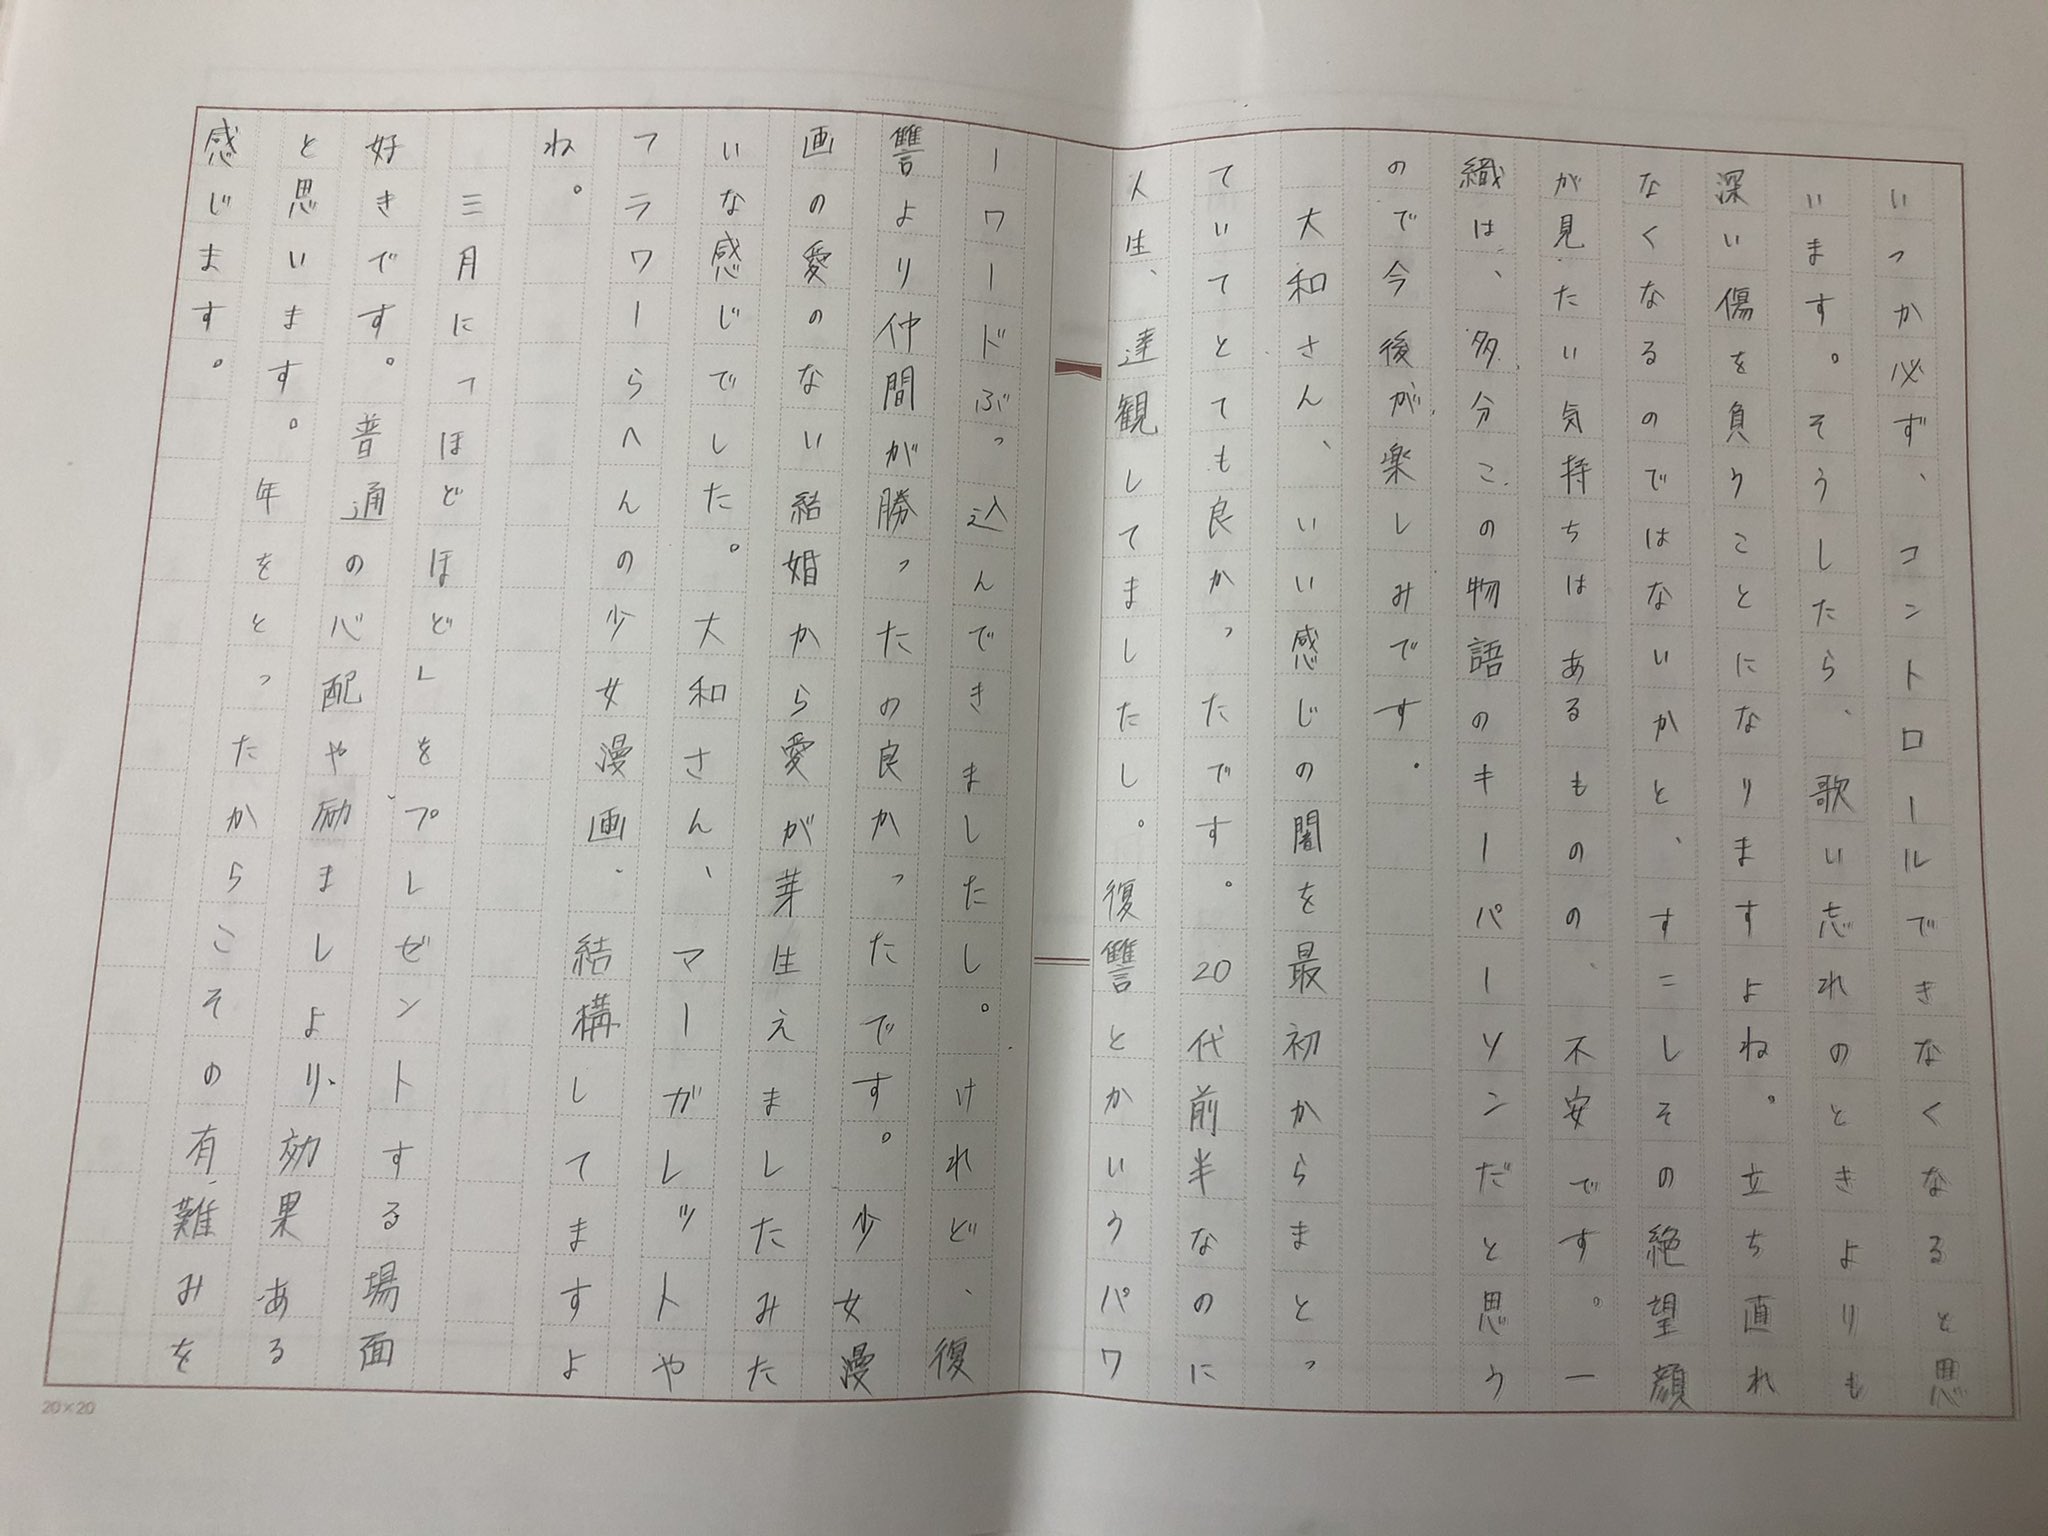 いっか必ず、コントロールできなくなると思
います。そうしたら、歌い忘れのときよりも
深い傷を負うことになりますよね。立ち直れ
なくなるのではないかと、すこしその絶望顔
が見たい気持ちはあるものの、不安です。一
織は、多分この物語のキーパーソンだと思う
ので今後が楽しみです。
大和さん、いい感じの闇を最初からまとっ
ていてとても良かったです。20代前半なのに
人生、達観してましたし。復讐とかいうパワ
ーワードぶっ込んできましたし。けれど、復
讐より仲間が勝ったの良かったです。少女漫
画の愛のない結婚から愛が芽生えましたみた
いな感じでした。大和さん、マーガレットや
フラワーらへんの少女漫画、結構してますよ
ね。
三月に「ほどほど」をプレゼントする場面
好きです。普通の心配や励ましより、効果ある
と思います。年をとったからこその有難みを
感じます。
20×20